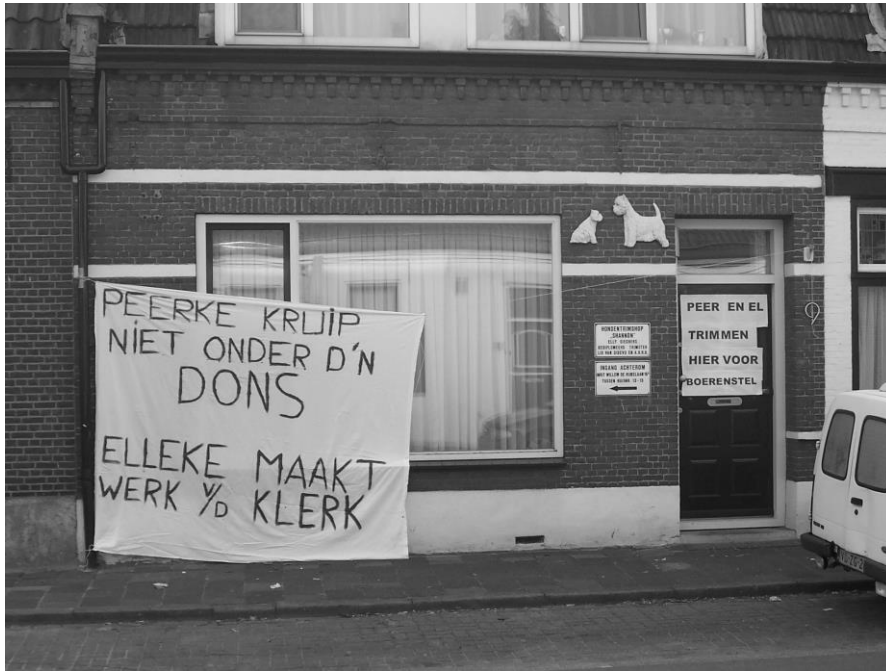 PEERKE KRUIP
NIET ONDER D'N
DONS
ELLEKE MAAKT
WERK V/D KLERK
HONDENTRIMSHOP
"SHANNON"
INGANG ACHTEROM
PEER EN EL
TRIMMEN
HIER VOOR
BOERENSTEL
9